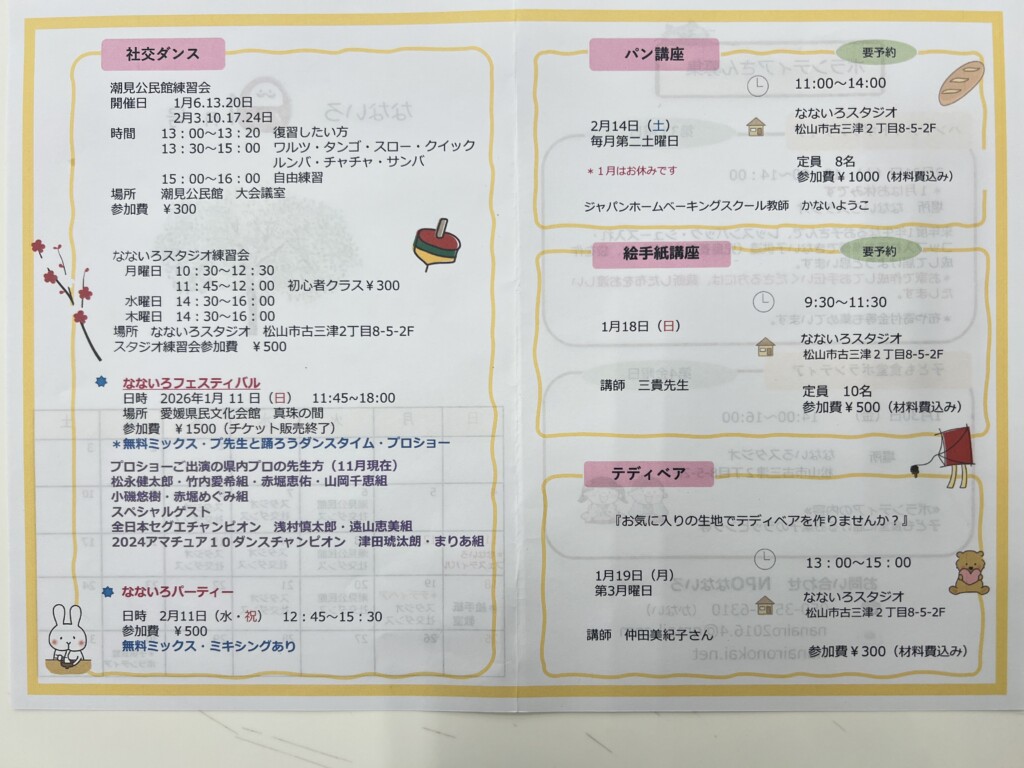 社交ダンス
潮見公民館練習会
開催日　1月6.13.20日
2月3.10.17.24日
時間　13：00～13：20　復習したい方
13：30～15：00　ワルツ・タンゴ・スロー・クイック
ルンバ・チャチャ・サンバ
15：00～16：00　自由練習
場所　潮見公民館　大会議室
参加費　￥300
なないろスタジオ練習会
月曜日　10：30～12：30
11：45～12：00　初心者クラス￥300
水曜日　14：30～16：00
木曜日　14：30～16：00
場所　なないろスタジオ　松山市古三津2丁目8-5-2F
スタジオ練習会参加費　￥500
なないろフェスティバル
日時　2026年1月 11 日（日）　11:45~18:00
場所　愛媛県民文化会館　真珠の間
参加費　￥1500（チケット販売終了）
＊無料ミックス・プ先生と踊ろうダンスタイム・プロショー
プロショーご出演の県内プロの先生方（11月現在）
松永健太郎・竹内愛希組・赤堀恵佑・山岡千恵組
小磯悠樹・赤堀めぐみ組
スペシャルゲスト
全日本セグエチャンピオン　浅村慎太郎・遠山恵美組
2024アマチュア１０ダンスチャンピオン　津田琥太朗・まりあ組
なないろパーティー
日時　2月11日（水・祝）　12：45～15：30
参加費　￥500
無料ミックス・ミキシングあり
パン講座
要予約
11:00～14:00
2月14日（土）
毎月第二土曜日
なないろスタジオ
松山市古三津２丁目8-5-2F
＊１月はお休みです
定員　8名
参加費￥1000（材料費込み）
ジャパンホームベーキングスクール教師　かないようこ
絵手紙講座
要予約
9:30～11:30
1月18日（日）
なないろスタジオ
松山市古三津２丁目8-5-2F
講師　三貴先生
定員　10名
参加費￥500（材料費込み）
テディベア
『お気に入りの生地でテディベアを作りませんか？』
13：00～15：00
1月19日（月）
第3月曜日
なないろスタジオ
松山市古三津２丁目8-5-2F
講師　仲田美紀子さん
参加費￥300（材料費込み）